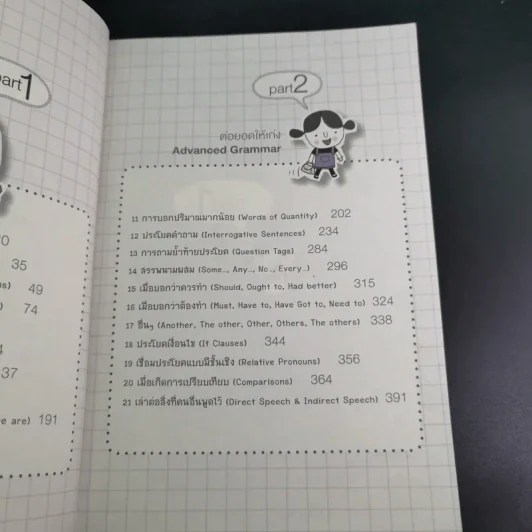 part1
70
35
49
74
37
e are) 191
part2
ต่อยอดให้เก่ง
Advanced Grammar
11 การบอกปริมาณมากน้อย (Words of Quantity) 202
12 ประโยคคำถาม (Interrogative Sentences) 234
13 การถามย้ำท้ายประโยค (Question Tags) 284
14 สรรพนามผสม (Some.., Any.., No.., Every..) 296
15 เมื่อบอกว่าควรทำ (Should, Ought to, Had better) 315
16 เมื่อบอกว่าต้องทำ (Must, Have to, Have Got to, Need to) 324
17 อื่นๆ (Another, The other, Other, Others, The others) 338
18 ประโยคเงื่อนไข (If Clauses) 344
19 เชื่อมประโยคแบบมีชั้นเชิง (Relative Pronouns) 356
20 เมื่อเกิดการเปรียบเทียบ (Comparisons) 364
21 เล่าต่อสิ่งที่คนอื่นพูดไว้ (Direct Speech & Indirect Speech) 391